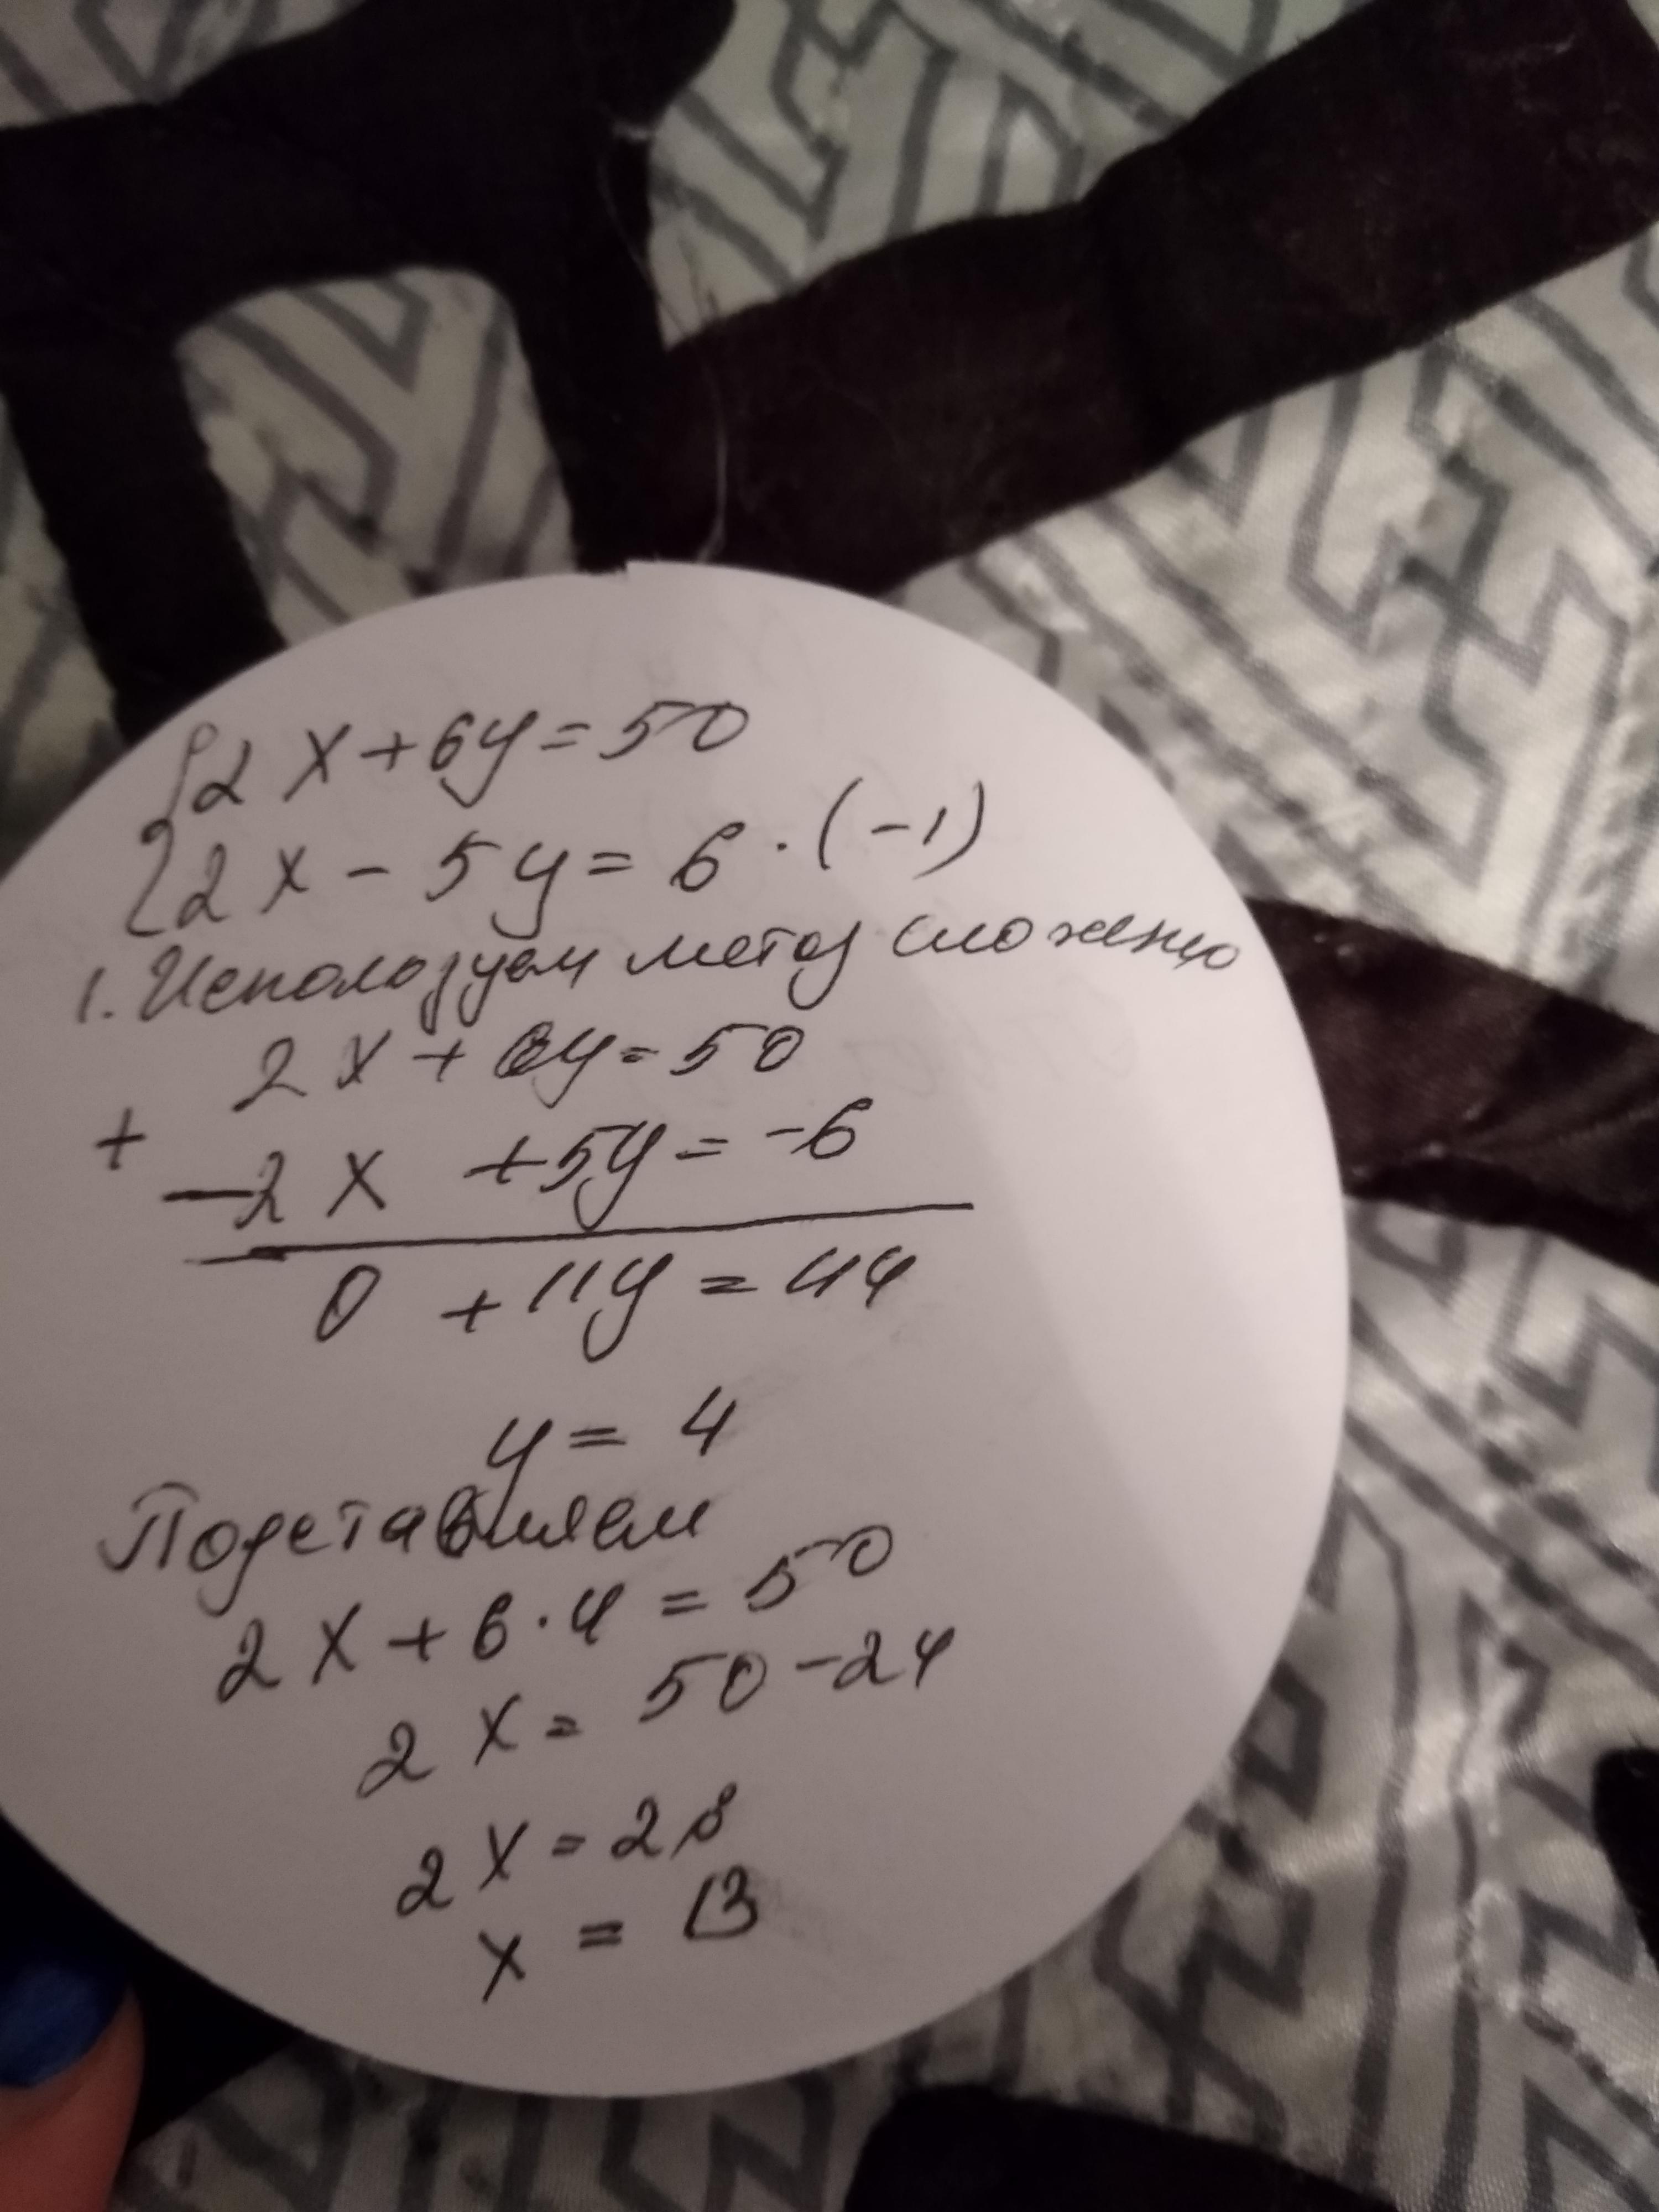 {2x+6y=50
{2x-5y=6·(-1)
1. Используем метод сложению
2x+6y=50
+
-2x +5y=-6
0 +11y=44
y=4
Подставляем
2x+6·4=50
2x=50-24
2x=28
x=13